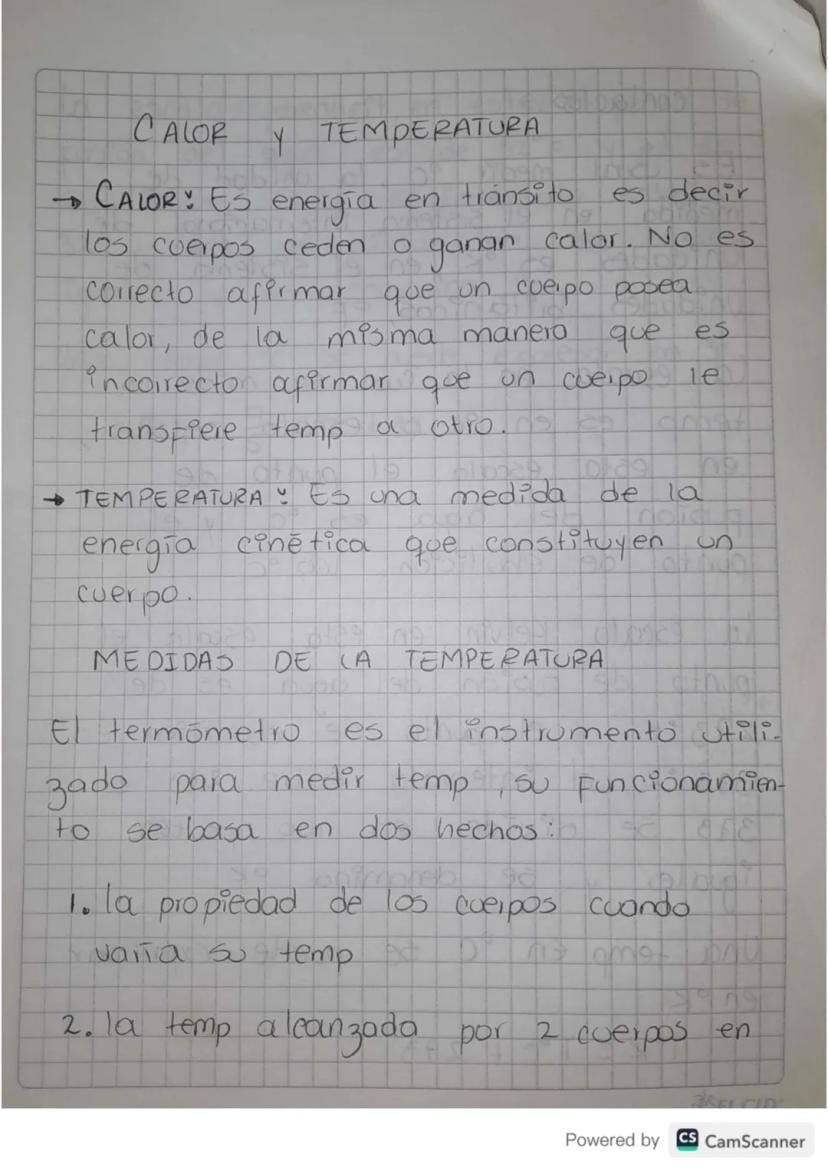 CALOR Y TEMPERATURA
→ CALOR: Es energía en tránsito es decir
los cuerpos ceden o ganan calor. No es
correcto afirmar que un cuerpo posea
calor, de la misma manera que es
incorrecto afirmar que un cuerpo le
transfiere temp a otro.
→ TEMPERATURA: Es una medida de la
energía cinética que constituyen un
cuerpo.
MEDIDAS DE LA TEMPERATURA
El termómetro es el instrumento utili-
zado para medir temp, su funcionamien-
to se basa en dos hechos:
1. la propiedad de los cuerpos cuando
varía su temp
2. la temp alcanzada por 2 cuerpos en
Powered by CS CamScanner